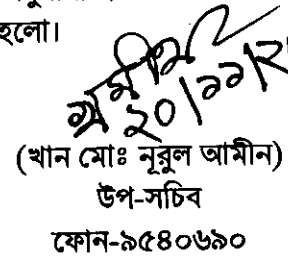 হলো।
২০/১১/২
(খান মোঃ নূরুল আমীন)
উপ-সচিব
ফোন-৯৫৪০৬৯০